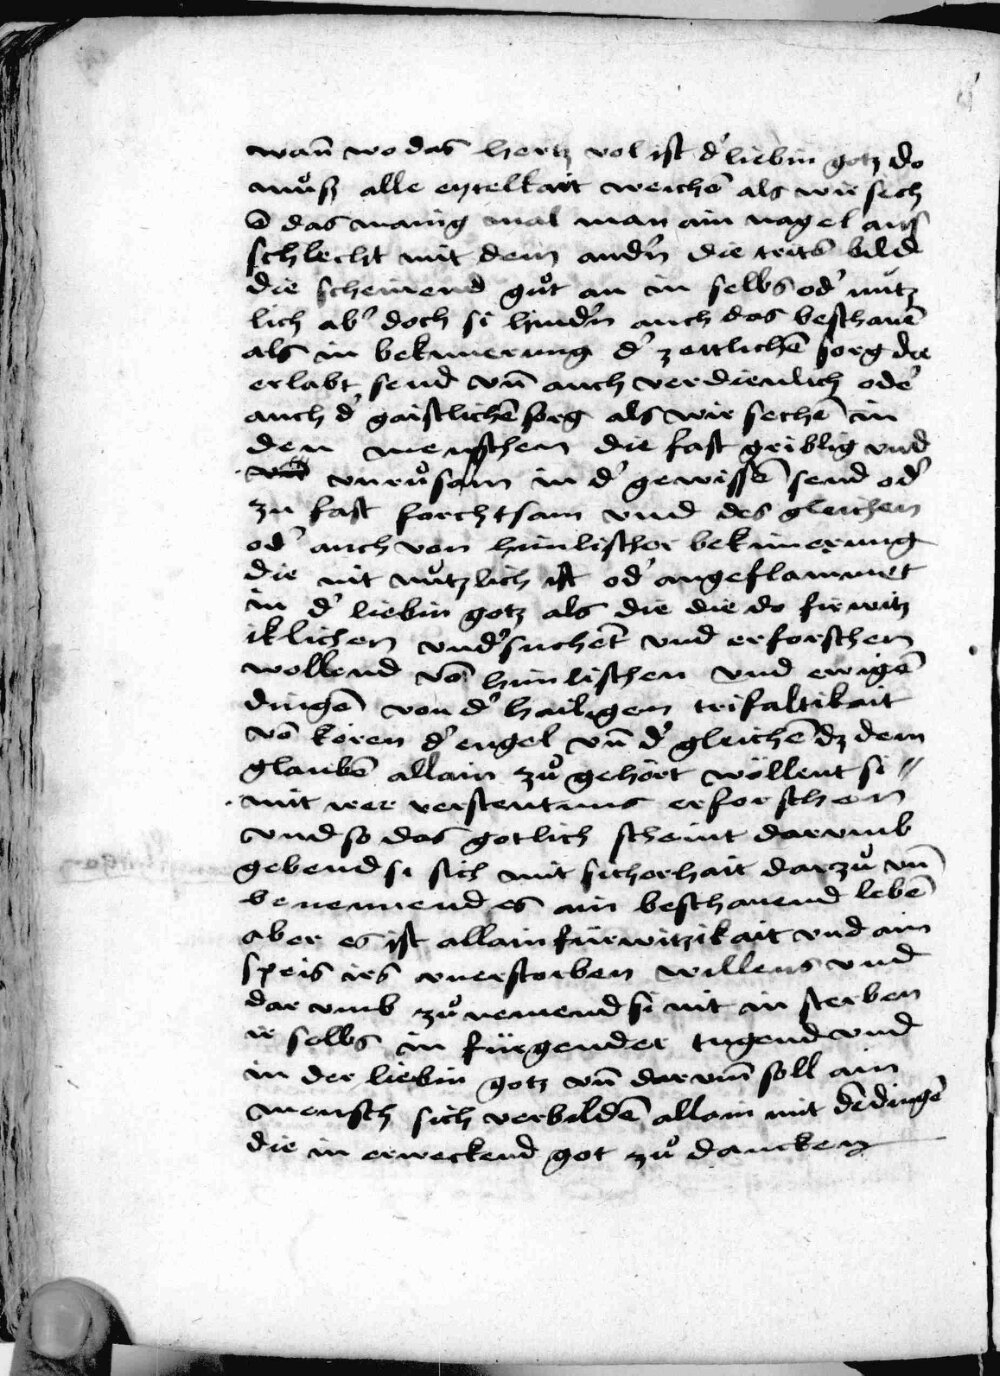 wan̄ wo das hertz vol ist d' liebin gotz do
muͦsz alle eytelkait weichē als wir sech
ē das manig mal man ain nagel ausz
schlecht mit dem andn̄ die tritē bild
die scheinend guͦt an in selbs od' nutz
lich ab' doch si hindn̄ auch das beschauē
als in bekumerung d' zeitlichē sorg die
erlabt send vn̄ auch verdienlich ode'
auch d' gaistlichē sorg als wir sechē in
den menschen die fast griblig vnd
vnruͦsam in d' gewissē send od'
zu fast forchtsam vnd des gleichen
od' auch von himlischer bekimerung
die nit nutzlich ist od' angeflammet
in d' liebin gotz als die die do firwitz
iklichen vnd'suchēt vnd erforschen
wollend vō himlischen vnd ewigē
dingē von d' hailigen trifaltikait
vō kören d' engel vn̄ d' gleichē dz dem
glaubē allain zuͦ gehört wöllent si //
mit irer verstentnus erforschen
vnd so das gotlich scheint darumb
gebend si sich mit sicherhait darzuͦ vn̄
benennend es ain beschauend lebē
aber es ist allain fürwitzikait vnd ain
speis irs vnerstorben willens vnd
dar vmb zuͦ nemend si nit in sterben
ir selbs in fürgender tugend vnd
in der liebin gotz vn̄ dar vm̄ soll ain
mensch sich verbildē allain mit dē dingē
die in erweckend got zuͦ dancken